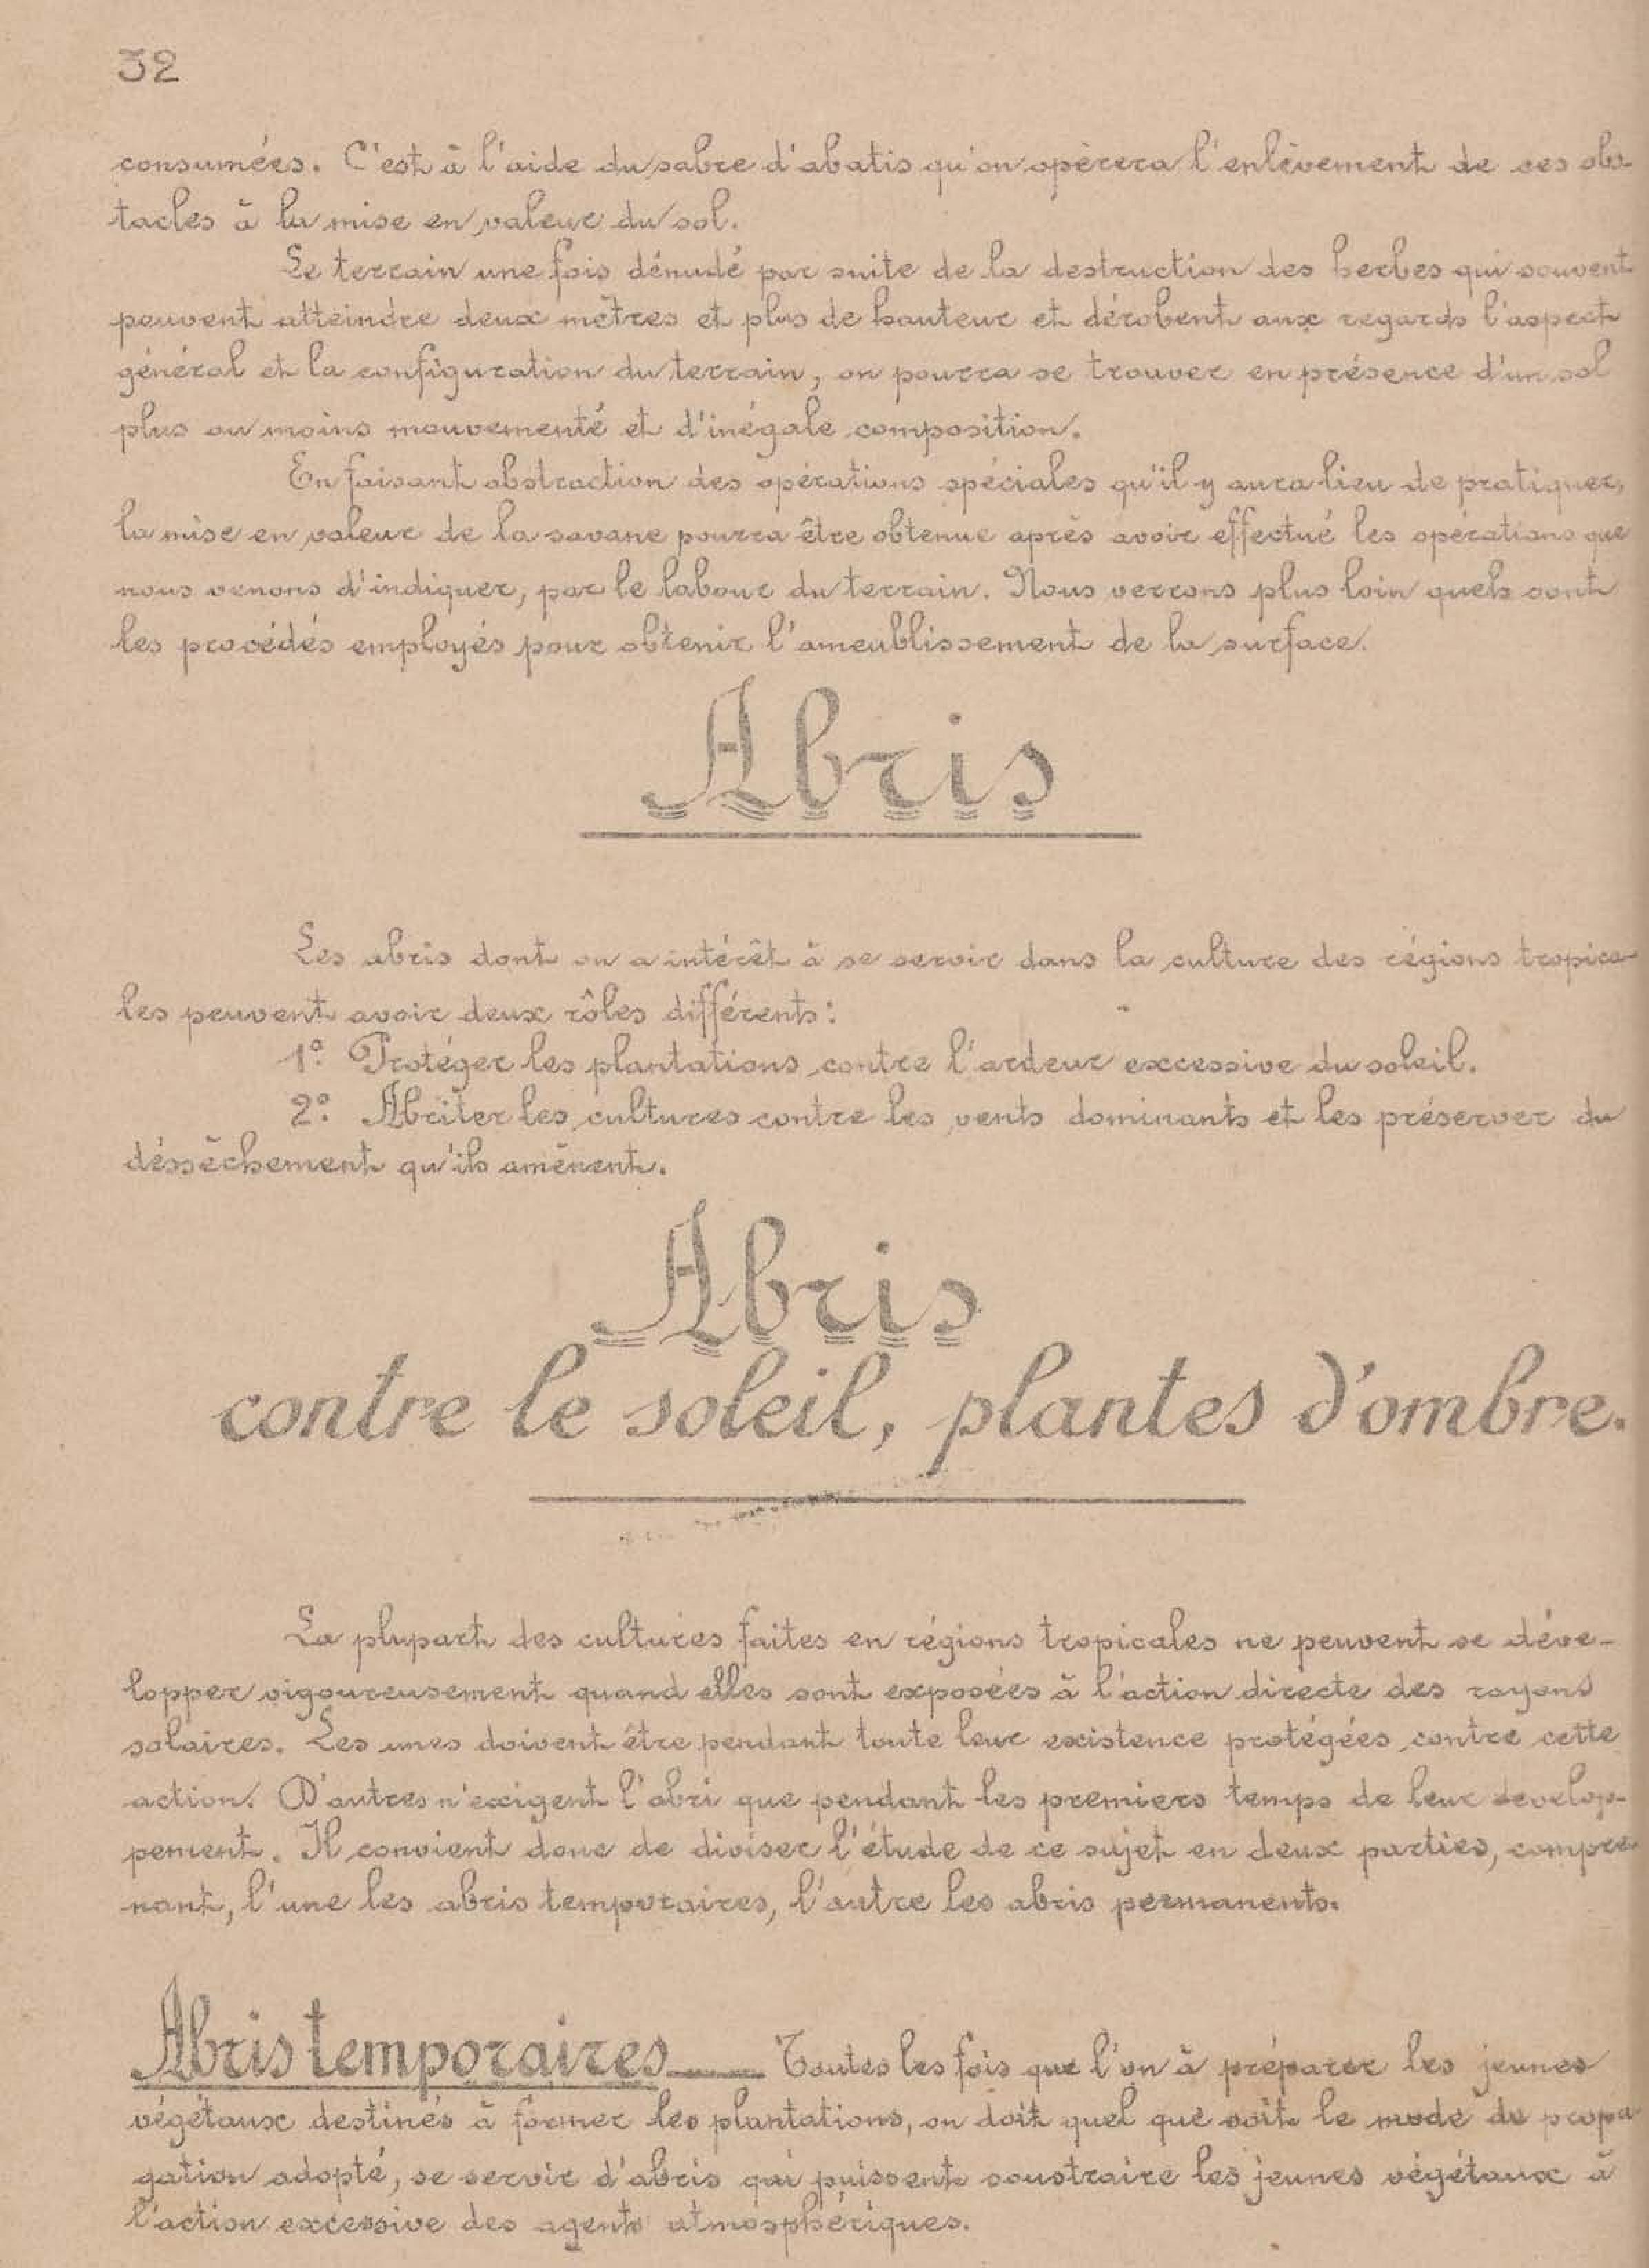 32
consumées. C'est à l'aide du sabre d'abatis qu'on opèrera l'enlèvement de ces obs-
tacles à la mise en valeur du sol.
Le terrain une fois dénudé par suite de la destruction des herbes qui souvent
peuvent atteindre deux mètres et plus de hauteur et dérobent aux regards l'aspect
général et la configuration du terrain, on pourra se trouver en présence d'un sol
plus ou moins mouvementé et d'inégale composition.
En faisant abstraction des opérations spéciales qu'il y aura lieu de pratiquer,
la mise en valeur de la savane pourra être obtenue après avoir effectué les opérations que
nous venons d'indiquer, par le labour du terrain. Nous verrons plus loin quels sont
les procédés employés pour obtenir l'ameublissement de la surface.
Abris
Les abris dont on a intérêt à se servir dans la culture des régions tropica-
les peuvent avoir deux rôles différents:
1° Protéger les plantations contre l'ardeur excessive du soleil.
2° Abriter les cultures contre les vents dominants et les préserver du
désséchement qu'ils amènent.
Abris
contre le soleil, plantes d'ombre.
La plupart des cultures faites en régions tropicales ne peuvent se déve-
lopper vigoureusement quand elles sont exposées à l'action directe des rayons
solaires. Les unes doivent être pendant toute leur existence protégées contre cette
action. D'autres n'exigent l'abri que pendant les premiers temps de leur develop-
pement. Il convient donc de diviser l'étude de ce sujet en deux parties, compre-
nant, l'une les abris temporaires, l'autre les abris permanents.
Abris temporaires — Toutes les fois que l'on à préparer les jeunes
végétaux destinés à former les plantations, on doit quel que soit le mode de propa-
gation adopté, se servir d'abris qui puissent soustraire les jeunes végétaux à
l'action excessive des agents atmosphériques.